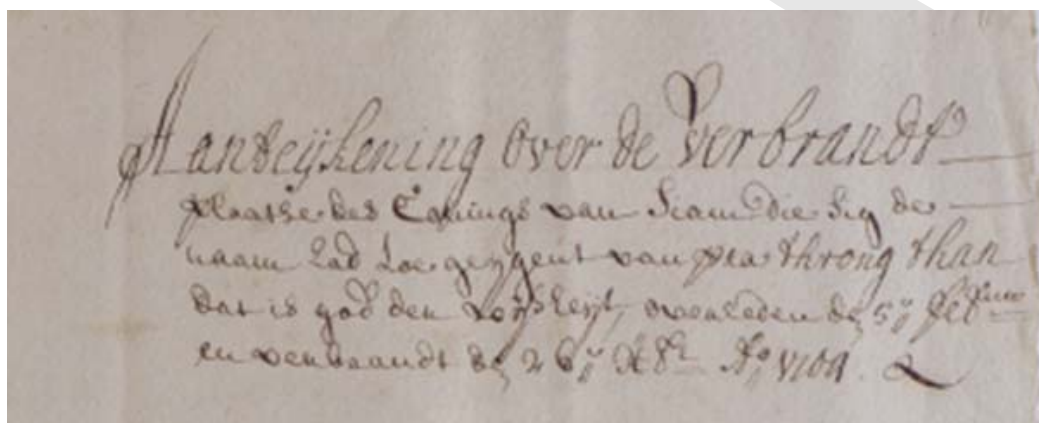 Aanteijkening over de verbrandt
plaatse des Conings van Siam die sig de
naam had toe geeijgent van pra throng than
dat is god der wijsheijt, overleden de 5:' feb:ruarij
en verbrandt de 26:' Xb:r A:o 1704.